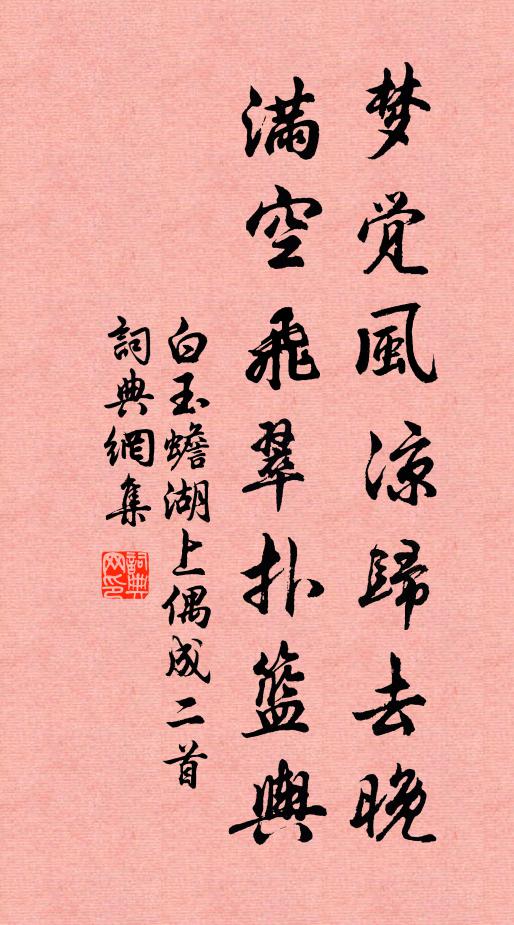 梦觉風凉歸去晚
滿空飛翠扑籃輿
白玉蟾湖上偶成二首
詞典網集
詞典网印